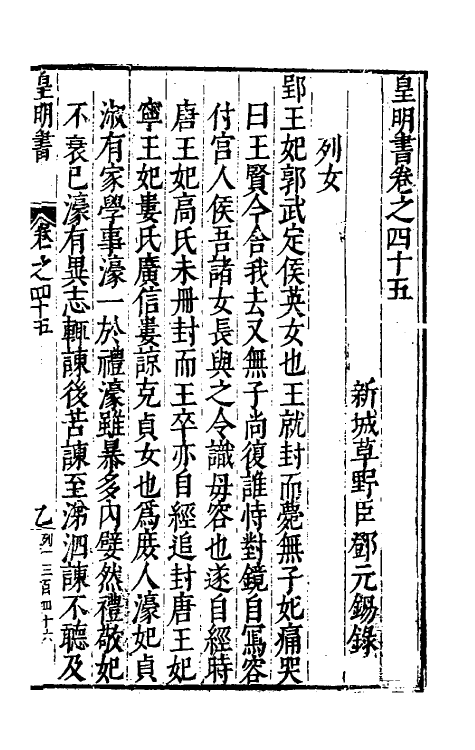 皇明書卷之四十五
新城草野臣鄧元錫錄
列女
郢王妃郭武定侯英女也王就封而薨無子妃痛哭
曰王賢今舍我去又無子尚復誰恃對鏡自寫容
付宮人侯吾諸女長與之令識毋容也遂自經時
唐王妃高氏未冊封而王卒亦自經追封唐王妃
寧王妃婁氏廣信婁諒克貞女也爲庻人濠妃貞
淑有家學事濠一於禮濠雖暴多內嬖然禮敬妃
不衰已濠有異志輒諫後苦諫至涕泗諫不聽及
皇明書
卷之四十五
乙
列一三百四十六